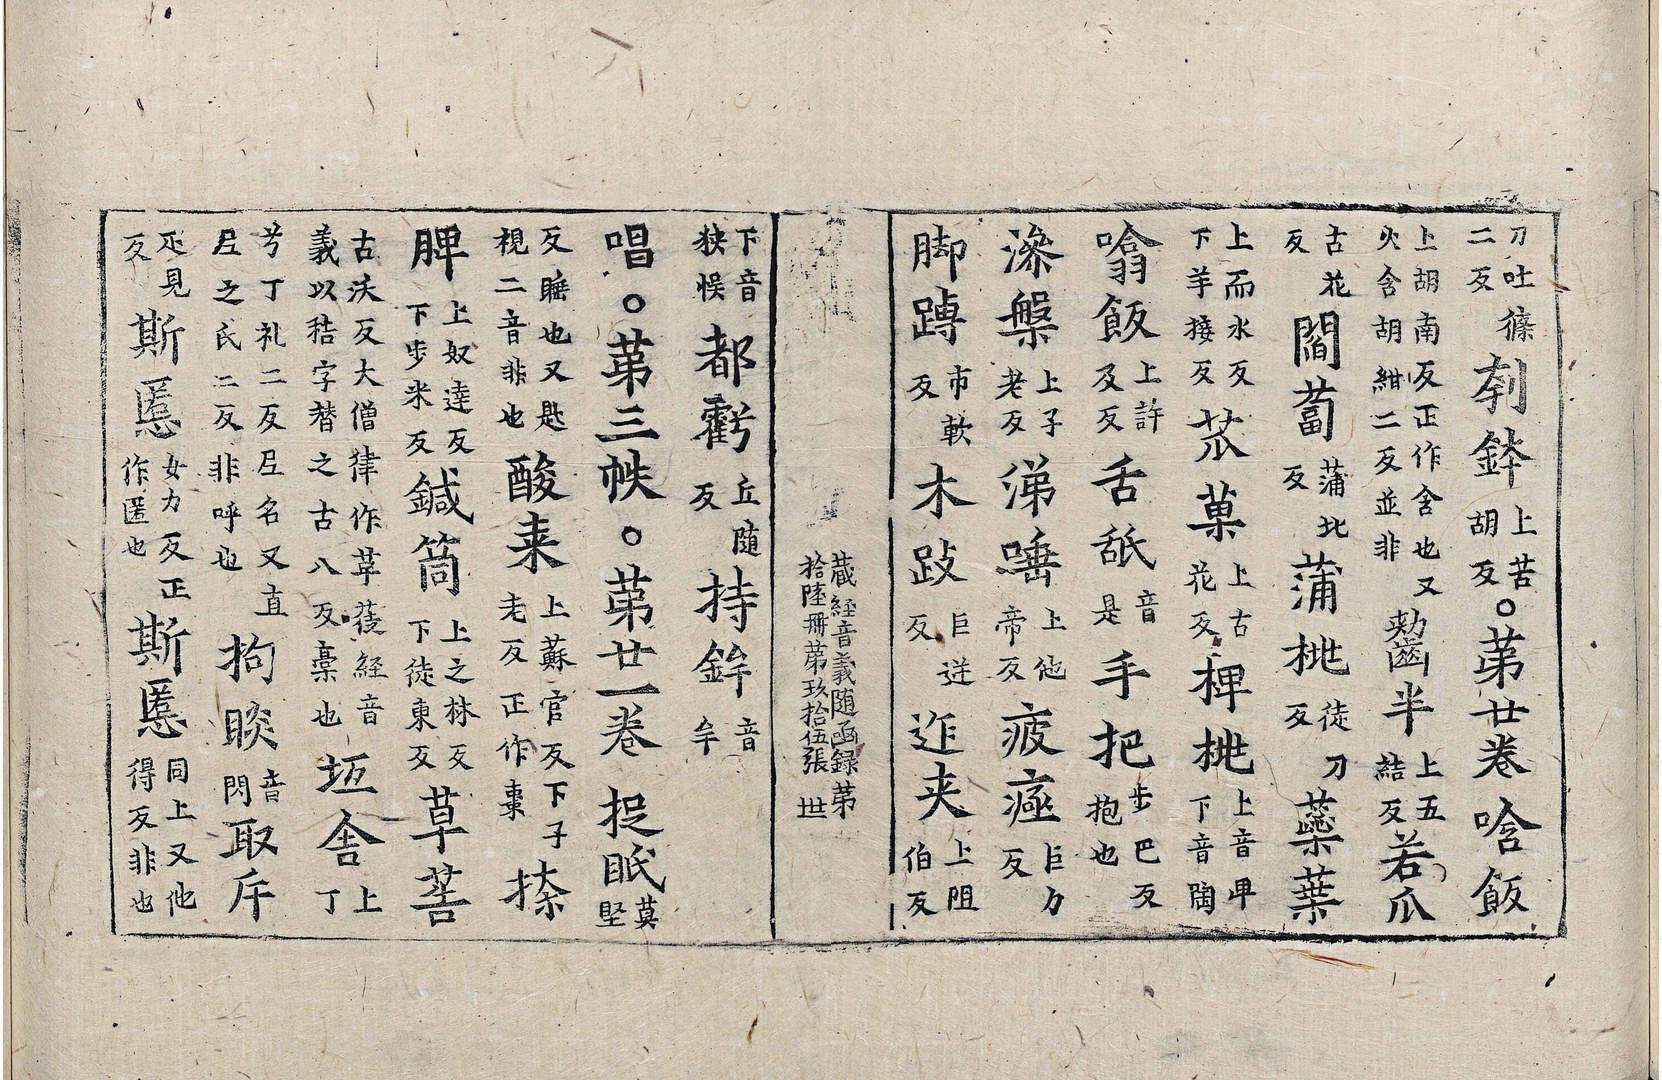 刀吐篠二反刳鉢上苦胡反。苐廿卷唅飯
上胡南反正作含也又火含胡紺二反並非齧半上五結反若瓜
古花反閻蔔蒲北反蒲桃徒刀反蘂葉
上而水反下羊接反苽菓上古花反椑桃上音卑下音陶
噏飯上許及反舌舐音是手把步巴反抱也
澡槃上子老反涕唾上他帝反疲極巨力反
脚蹲市軟反木跂巨逆反迮夹上阻伯反
蔵経音義随函録第拾陸冊第玖拾伍張 世
下音狭悮都虧丘随反持鉾音牟
唱。苐三帙。苐廿一卷 捉眠莫堅
反睡也又匙視二音非也酸来上蘇官反下子老反正作棗捺
髀上奴達反下步米反鍼筒上之林反下徒東反草䓘
古沃反大僧律作草䓘経音義以秸字替之古八反槀也坻舍上丁
兮丁礼二反㞾名又直㞾之氏二反非呼也拘睒音閃取斥
疋見反斯慝女力反正作匿也斯慝同上又他得反非也